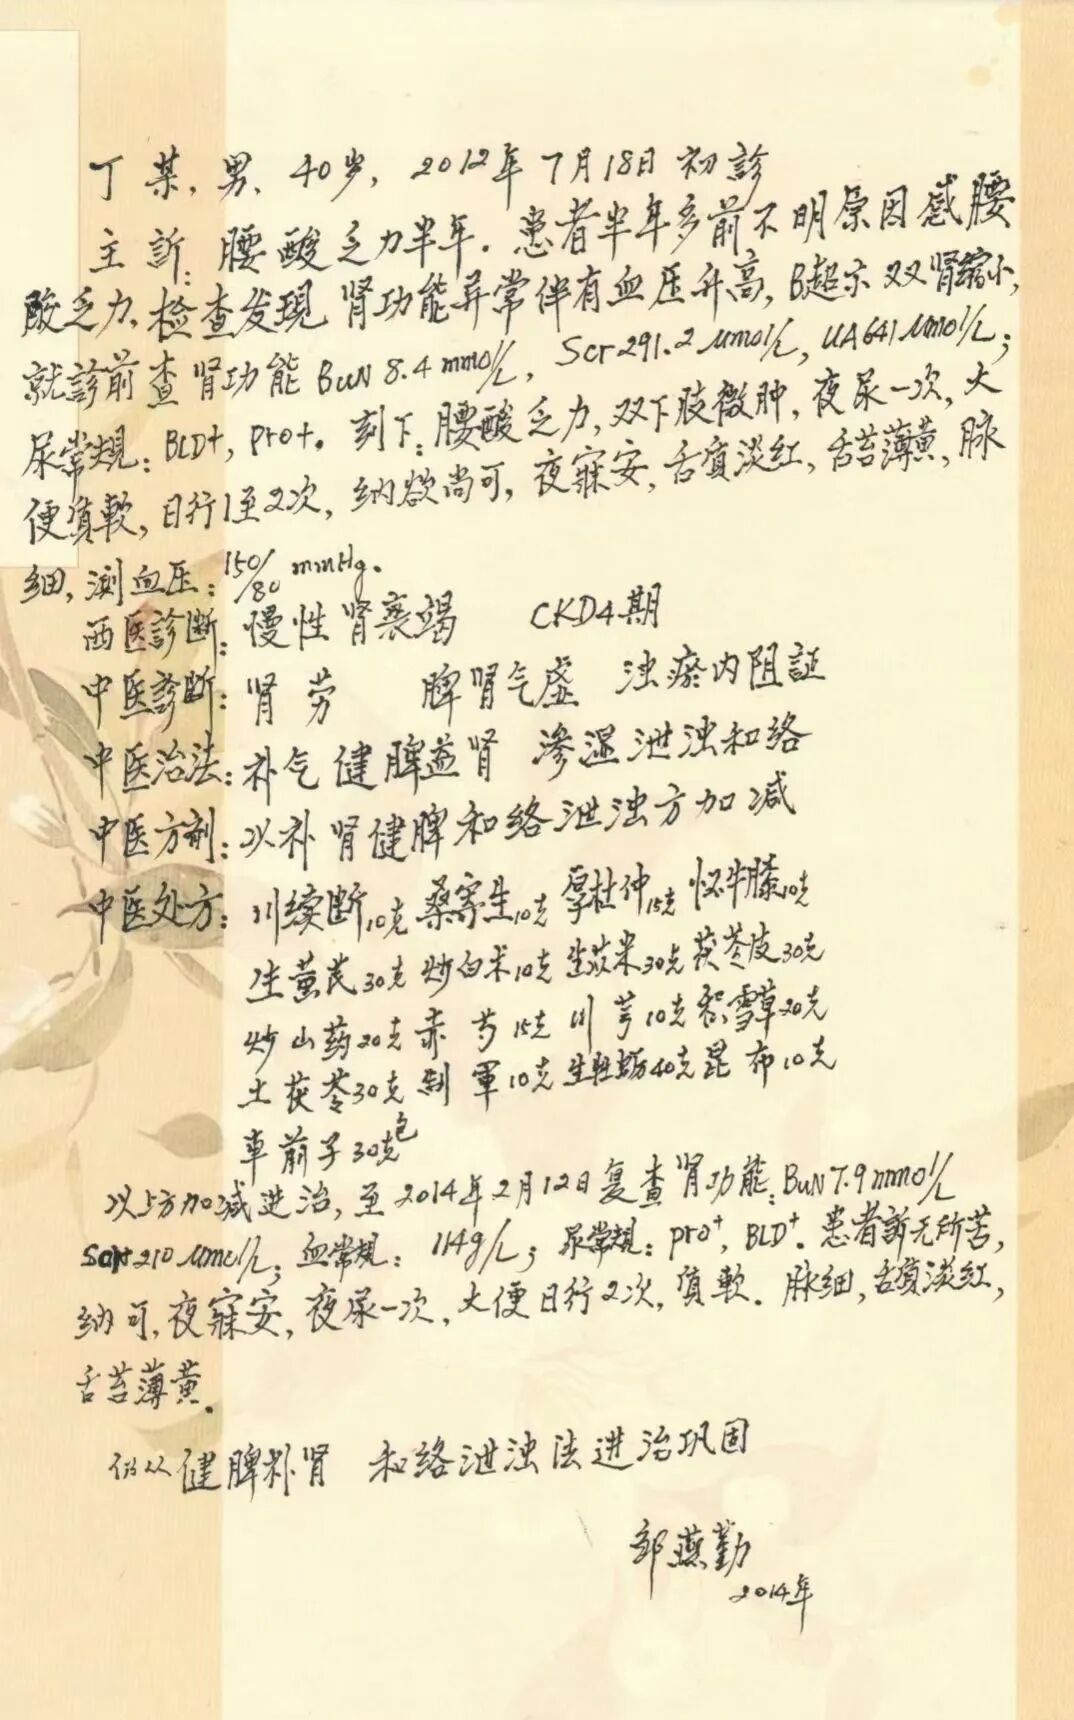 丁某，男，40岁，2012年7月18日初診
主訴：腰酸乏力半年。患者半年多前不明原因感腰
酸乏力，检查发現肾功能异常伴有血压升高，B超示双肾缩小，
就診前查肾功能BUN 8.4mmol/L，Scr 291.2μmol/L，UA 641μmol/L；
尿常規：BLD+，pro+。刻下：腰酸乏力，双下肢微肿，夜尿一次，大
便質軟，日行1至2次，纳欲尚可，夜寐安，舌質淡红，舌苔薄黄，脉
细，测血压：150/80 mmHg。
西医診断：慢性肾衰竭 CKD4期
中医診断：肾劳 脾肾气虚 浊瘀内阻証
中医治法：补气健脾益肾 渗湿泄浊和络
中医方剂：以补肾健脾和络泄浊方加减
中医处方：川续断10克 桑寄生10克 厚杜仲15克 怀牛膝10克
生黄芪30克 炒白术10克 生苡米30克 茯苓皮30克
炒山药20克 赤芍15克 川芎10克 积雪草20克
土茯苓30克 制軍10克 生牡蛎40克 昆布10克
車前子30克包
以上方加减进治，至2014年2月12日复查肾功能：BUN 7.9mmol/L
Scr 210μmol/L；血常規：114g/L；尿常規：pro+，BLD+。患者訴无所苦，
纳可，夜寐安，夜尿一次，大便日行2次，質軟。脉细，舌質淡红，
舌苔薄黄。
仍从健脾补肾 和络泄浊法进治巩固
邹燕勤
2014年